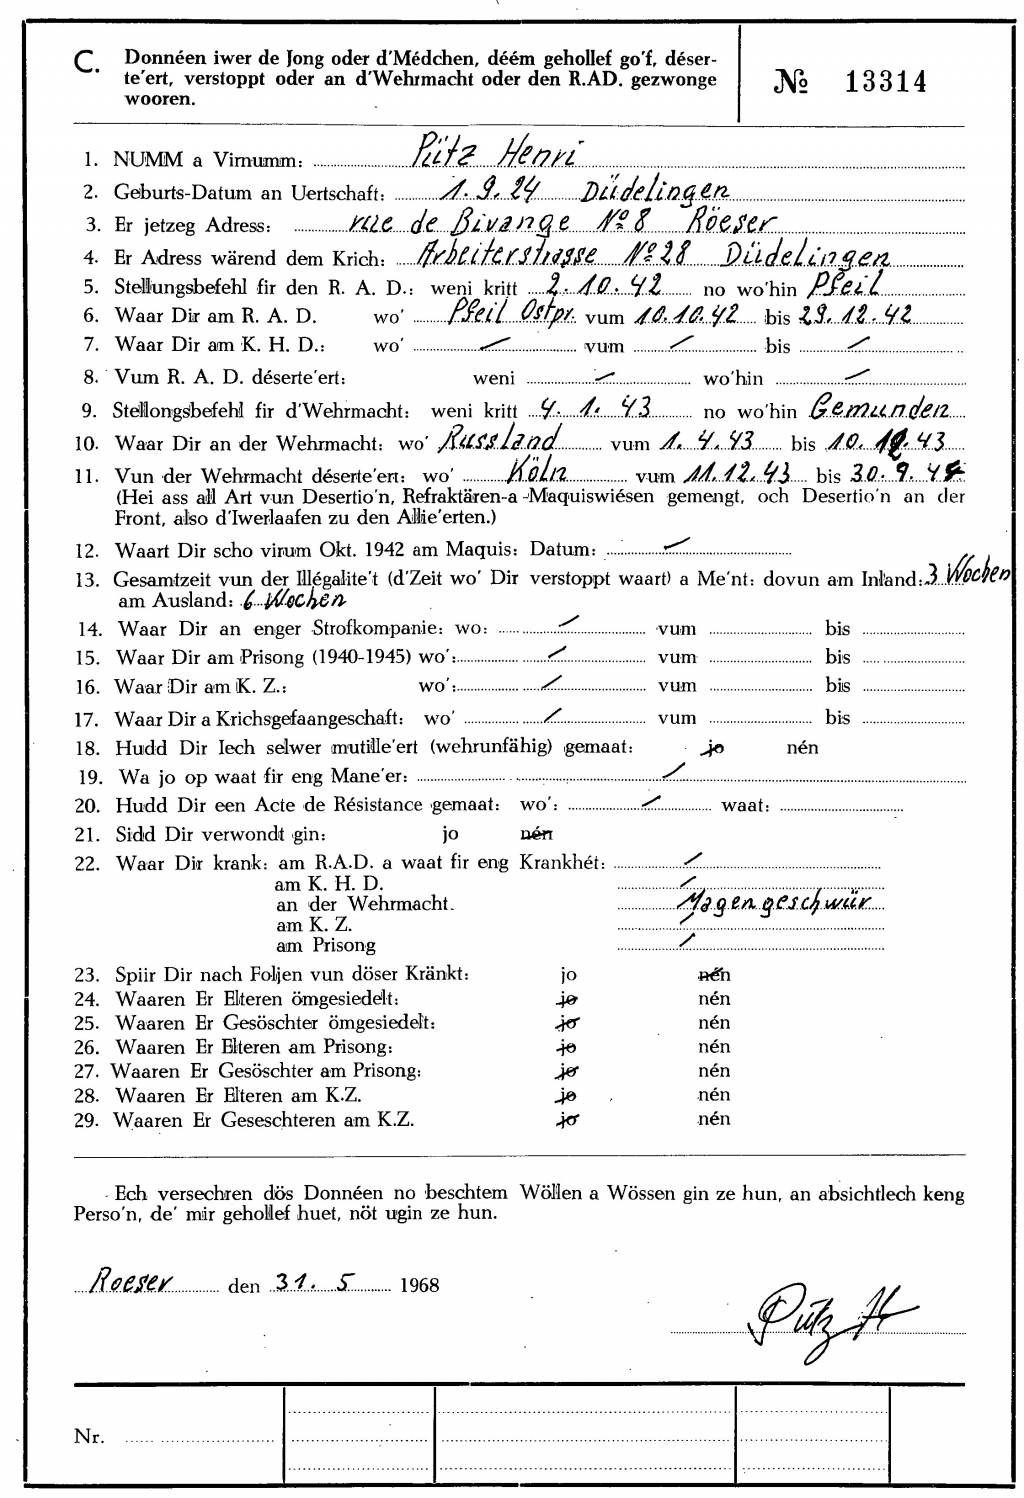 C. Donnéen iwer de Jong oder d'Médchen, déém gehollef go'f, déser-
te'ert, verstoppt oder an d'Wehrmacht oder den R.AD. gezwonge
wooren.
№ 13314
1. NUMM a Virnumm: Pütz Henri
2. Geburts-Datum an Uertschaft: 1.9.24 Düdelingen
3. Er jetzeg Adress: rue de Bivange No 8 Röeser
4. Er Adress wärend dem Krich: Arbeiterstrasse No 28 Düdelingen
5. Stellungsbefehl fir den R. A. D.: weni kritt 2.10.42 no wo'hin Pfeil
6. Waar Dir am R. A. D. wo' Pfeil Ostpr. vum 10.10.42 bis 29.12.42
7. Waar Dir am K. H. D.: wo' / vum / bis /
8. Vum R. A. D. déserte'ert: weni / wo'hin /
9. Stellongsbefehl fir d'Wehrmacht: weni kritt 4. 1. 43 no wo'hin Gemunden
10. Waar Dir an der Wehrmacht: wo' Russland vum 1. 4. 43 bis 10. 12. 43
11. Vun der Wehrmacht déserte'ert: wo' Köln vum 11.12.43 bis 30.9.44
(Hei ass all Art vun Desertio'n, Refraktären-a-Maquiswiésen gemengt, och Desertio'n an der
Front, also d'Iwerlaafen zu den Allie'erten.)
12. Waart Dir scho virum Okt. 1942 am Maquis: Datum: /
13. Gesamtzeit vun der Illégalite't (d'Zeit wo' Dir verstoppt waart) a Me'nt: dovun am Inland: 3 Wochen
am Ausland: 6 Wochen
14. Waar Dir an enger Strofkompanie: wo: / vum bis
15. Waar Dir am Prisong (1940-1945) wo': / vum bis
16. Waar Dir am K. Z.: wo': / vum bis
17. Waar Dir a Krichsgefaangeschaft: wo' / vum bis
18. Hudd Dir Iech selwer mutille'ert (wehrunfähig) gemaat: jo nén
19. Wa jo op waat fir eng Mane'er: /
20. Hudd Dir een Acte de Résistance gemaat: wo': / waat:
21. Sidd Dir verwondt gin: jo nén
22. Waar Dir krank: am R.A.D. a waat fir eng Krankhét: /
am K. H. D. /
an der Wehrmacht. Magengeschwür
am K. Z. /
am Prisong /
23. Spiir Dir nach Foljen vun döser Kränkt: jo nén
24. Waaren Er Elteren ömgesiedelt: jo nén
25. Waaren Er Gesöschter ömgesiedelt: jo nén
26. Waaren Er Elteren am Prisong: jo nén
27. Waaren Er Gesöschter am Prisong: jo nén
28. Waaren Er Elteren am K.Z. jo nén
29. Waaren Er Geseschteren am K.Z. jo nén
Ech versechren dös Donnéen no beschtem Wöllen a Wössen gin ze hun, an absichtlech keng
Perso'n, de' mir gehollef huet, nöt ugin ze hun.
Roeser den 31. 5 1968
Pütz H
Nr.